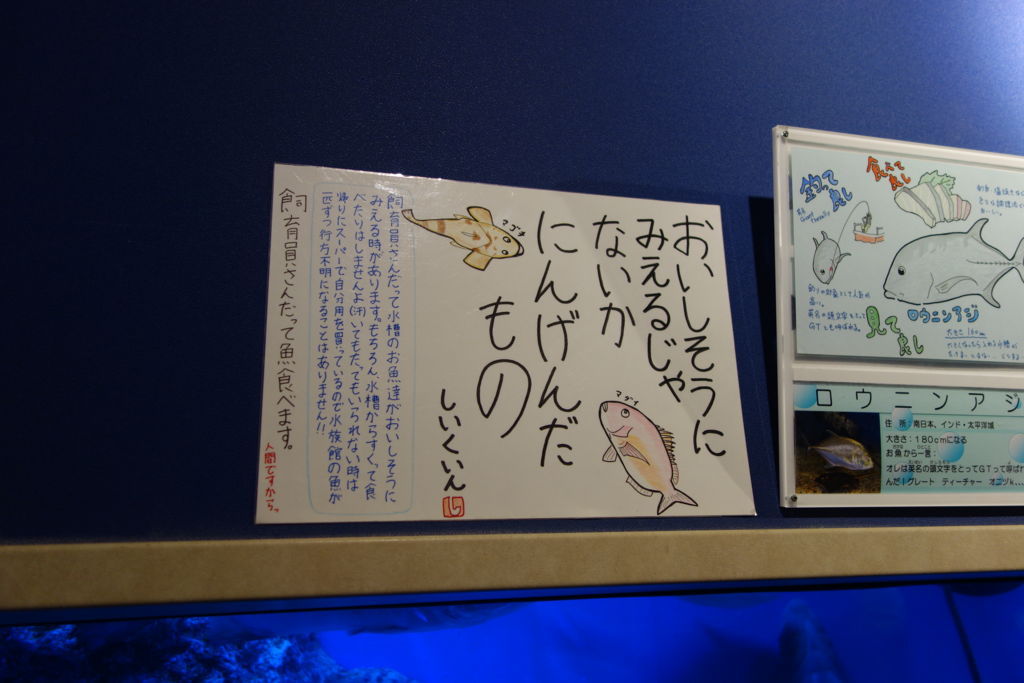 おいしそうに
みえるじゃ
ないか
にんげんだ
もの
しいくいん
マゴチ
マダイ
飼育員さんだって水槽のお魚達がおいしそうに
みえる時があります。もちろん、水槽からすくって食
べたりはしませんよ(汗)いてもたってもいられない時は
帰りにスーパーで自分用を買っているので水族館の魚が
匹ずつ行方不明になることはありません!!
飼育員さんだって魚食べます。
人間ですからっ
釣って良し
食べて良し
見て良し
ロウニンアジ
大きさ 180cm
釣りの対象として人気が
高い。
英名の頭文字をとって
GTとも呼ばれる。
ロウニンアジ
住所:南日本、インド・太平洋域
大きさ:180cmになる
お魚から一言:
オレは英名の頭文字をとってGTって呼ばれ
んだ!グレート ティーチャー オニヅk...